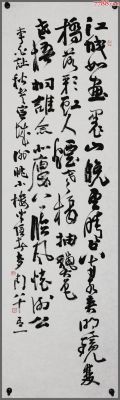 江城如畫裏山晚望晴空兩水夾明鏡雙
橋落彩虹人煙寒橘柚秋色
老梧桐誰念北樓上臨風懷謝公
李白詩秋登宣城謝朓北樓